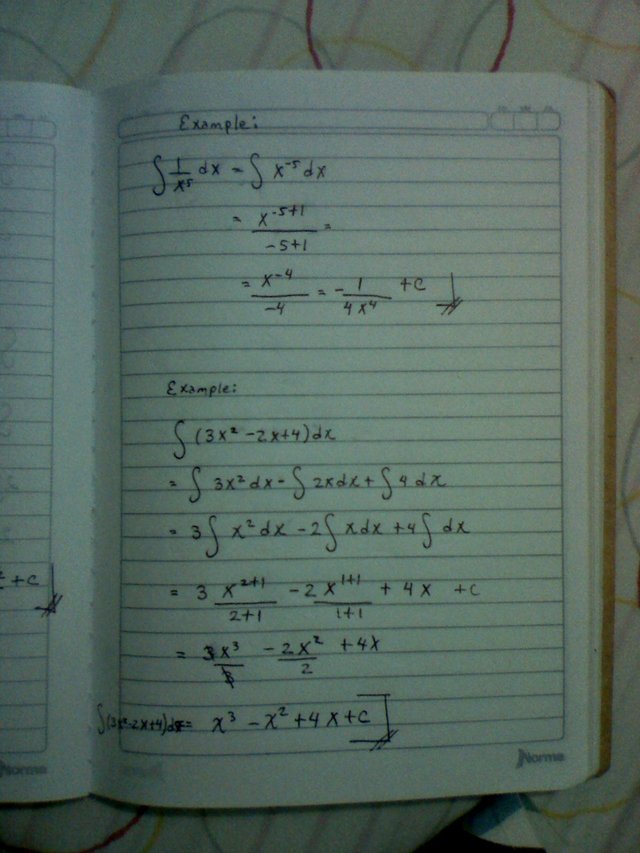 Example:
∫ 1/x⁵ dx = ∫ x⁻⁵ dx
= x⁻⁵⁺¹/-5+1 =
= x⁻⁴/-4 = - 1/4x⁴ + C
Example:
∫ (3x² - 2x + 4) dx
= ∫ 3x² dx - ∫ 2x dx + ∫ 4 dx
= 3 ∫ x² dx - 2 ∫ x dx + 4 ∫ dx
= 3 x²⁺¹/2+1 - 2 x¹⁺¹/1+1 + 4x + C
+ C
= 3x³/3 - 2x²/2 + 4x
∫ (3x² - 2x + 4) dx = x³ - x² + 4x + C
Norma
Norma